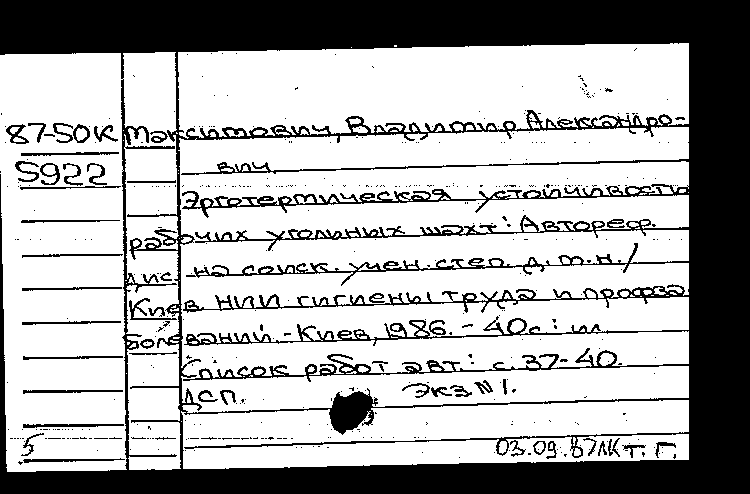 87-50К Максимович, Владимир Александро-
5922 вич.
Эрготермическая устойчивость
рабочих угольных шахт: Автореф.
дис. на соиск. учен. степ. д. м. н. /
Киев. НИИ гигиены труда и профза-
болеваний. - Киев, 1986. - 40с: ил.
Список работ авт.: с. 37-40.
ДСП. Экз N 1.
5 03.09.87 ЛК т. Г.